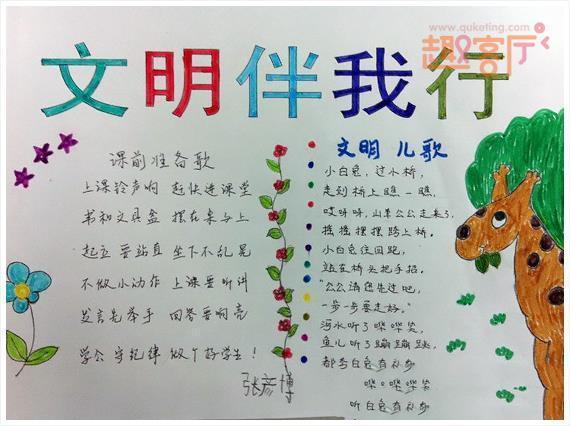 www.quketing.com
趣客厅
文明伴我行
课前准备歌
上课铃声响 赶快进课堂
书和文具盒 摆在桌与上
起立要站直 坐下不乱晃
不做小动作 上课要听讲
发言先举手 回答要响亮
学会守纪律 做个好学生！
张彦博
文明 儿歌
小白兔，过小桥，
走到桥上瞧一瞧，
哎呀呀，山羊公公走来了，
摇摇摆摆跨上桥。
小白兔往回跑，
站在桥头把手招。
"公公请您先过吧，
一步一步要走好。"
河水听了哗哗笑，
鱼儿听了蹦蹦跳，
都夸白兔有礼貌
哗哗哗哗笑
听白兔有礼貌